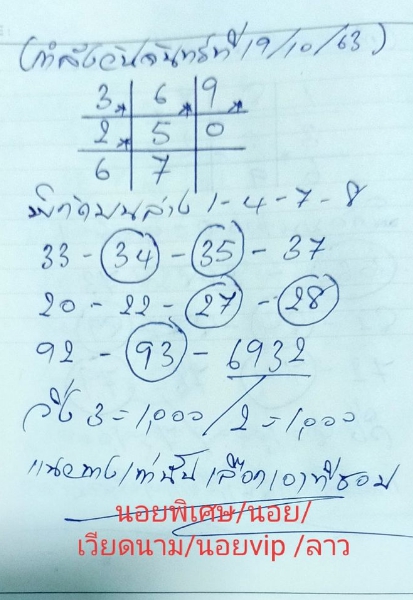 (กำลังวันจันทร์ที่ 19/10/63)
3 6 9
2 5 0
6 7
พิกัดบนล่าง 1-4-7-8
33 - 34 - 35 - 37
20 - 22 - 27 - 28
92 - 93 - 6932
วิ่ง 3 = 1,000 / 2 = 1,000
แนวทางเท่านั้นเลือกเอาที่ชอบ
นอยพิเศษ/นอย/
เวียดนาม/นอยvip /ลาว